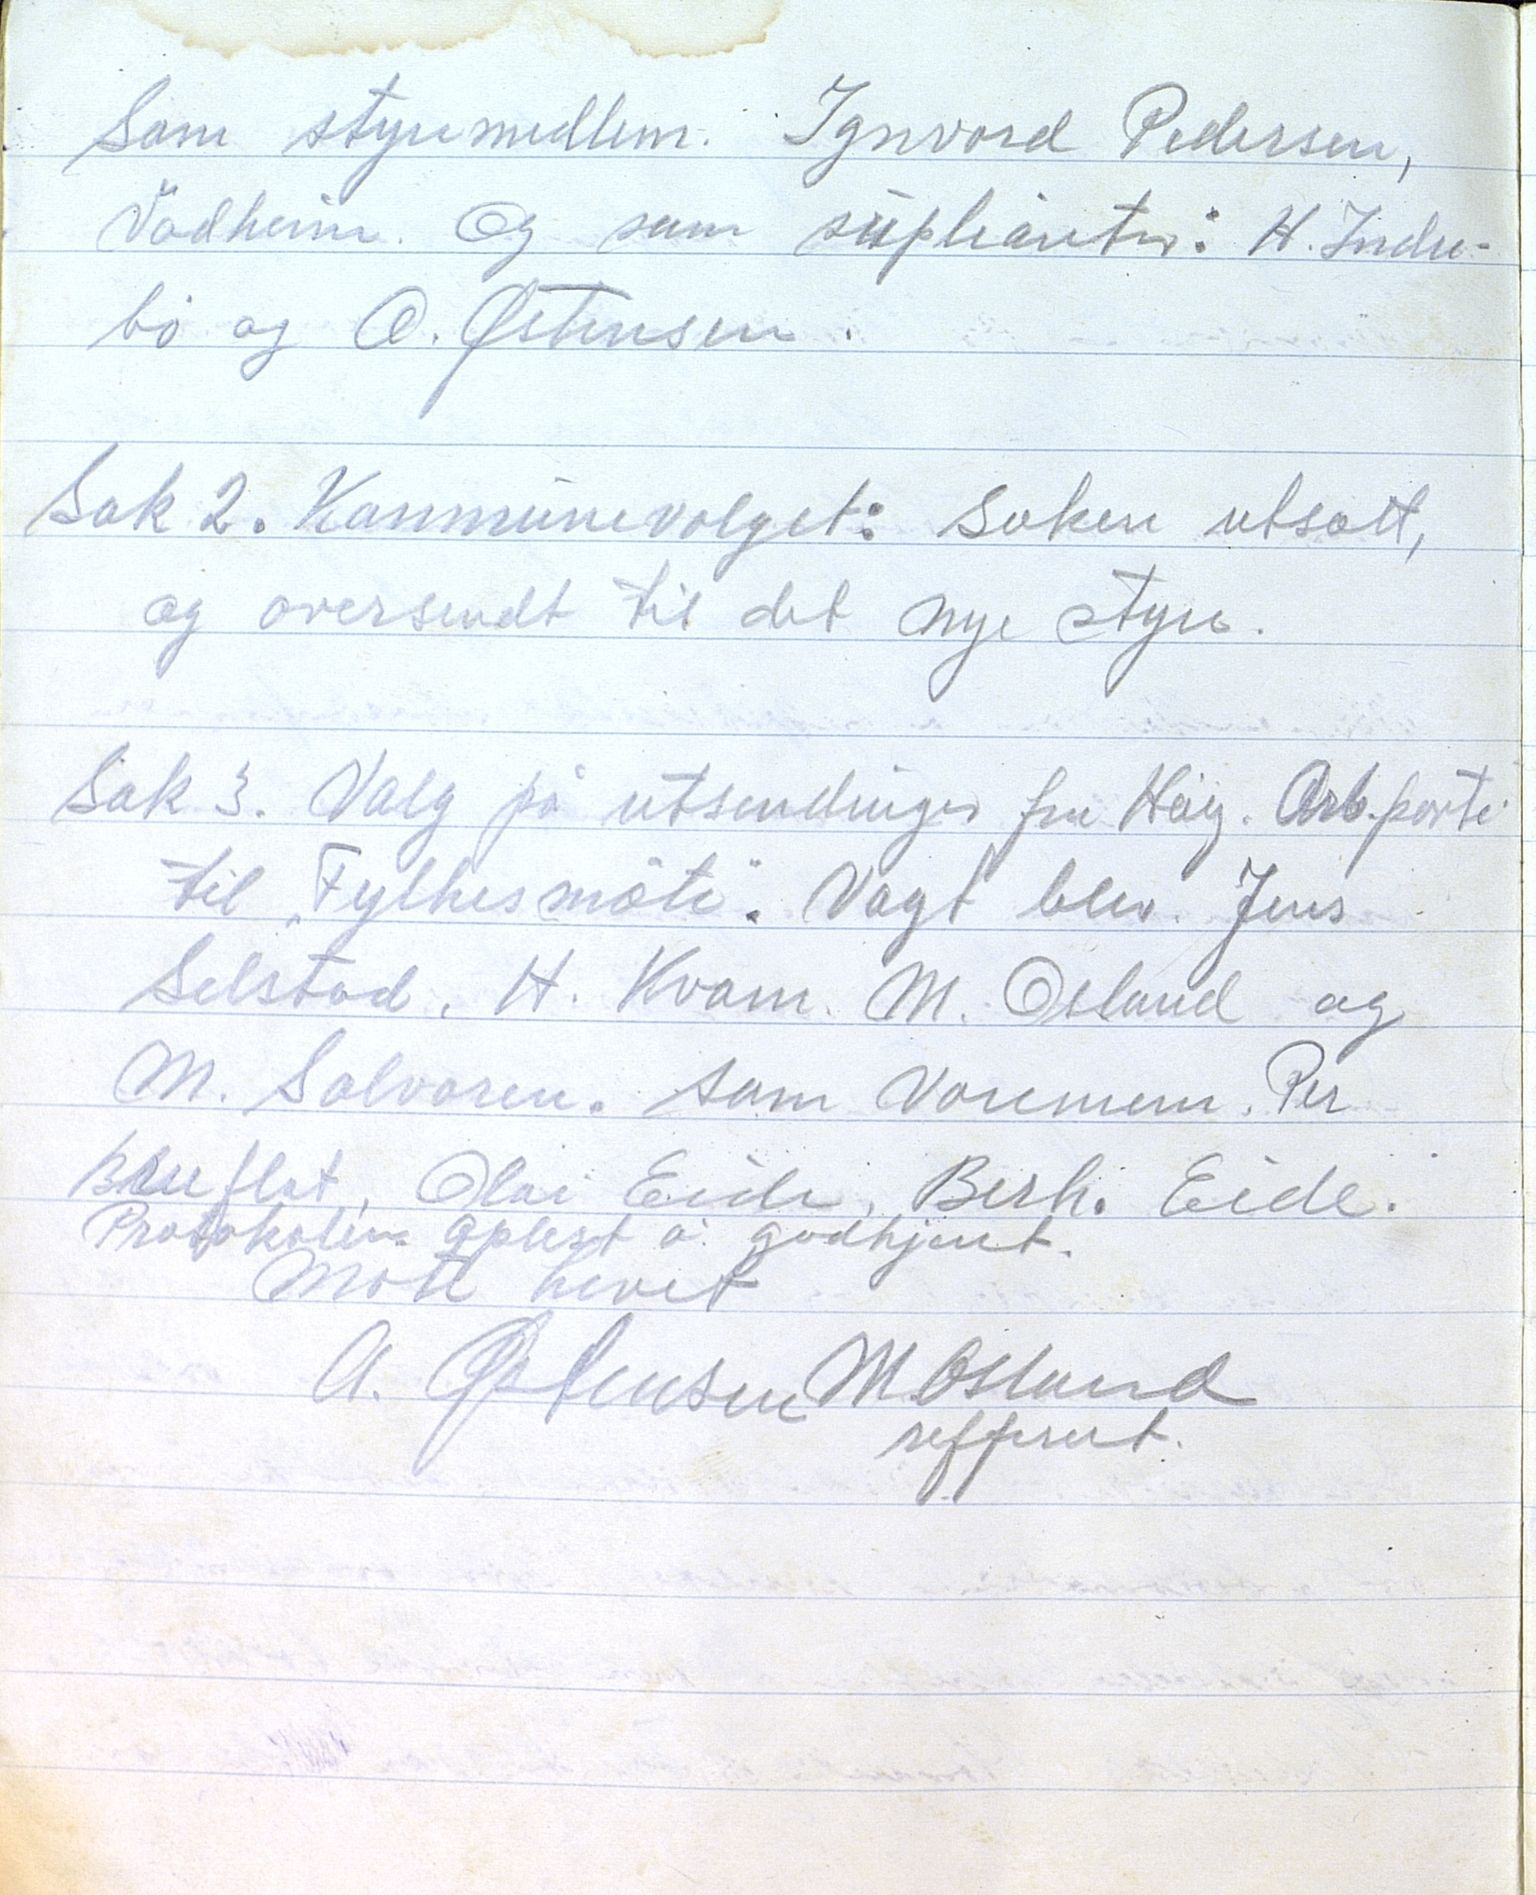 Som styremedlem. Ygnvard Pedersen,
Vadheim. Og som suplianter: H. Indre-
bø og O. Østensen.
Sak 2. Kommunevalget: Saken utsatt,
og oversendt til det nye styre.
Sak 3. Valg på utsendinger fra Høy. Arb. parti
til "Fylkesmøte". Vagt blev. Jens
Selstad, H. Kvam. M. Osland og
M. Solvoren. som varemenn. Per
Brueflat, Olai Eide, Berh. Eide.
Protokolen oplest å godkjent.
Møte hevet
A. Østensen M. Osland
refferent.